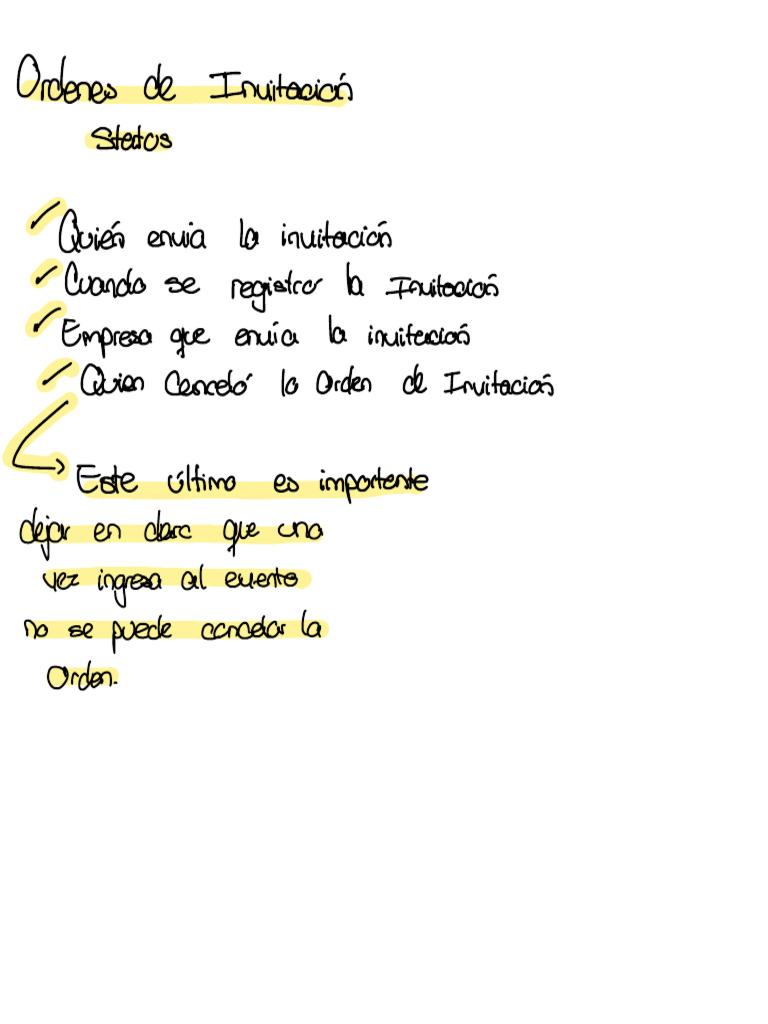 Ordenes de Invitación
Status
Quién envia la invitación
Cuando se registrar la Invitación
Empresa que envía la invitación
Quien Canceló la Orden de Invitación
Este último es importante
dejar en claro que una
vez ingresa al evento
no se puede cancelar la
Orden.